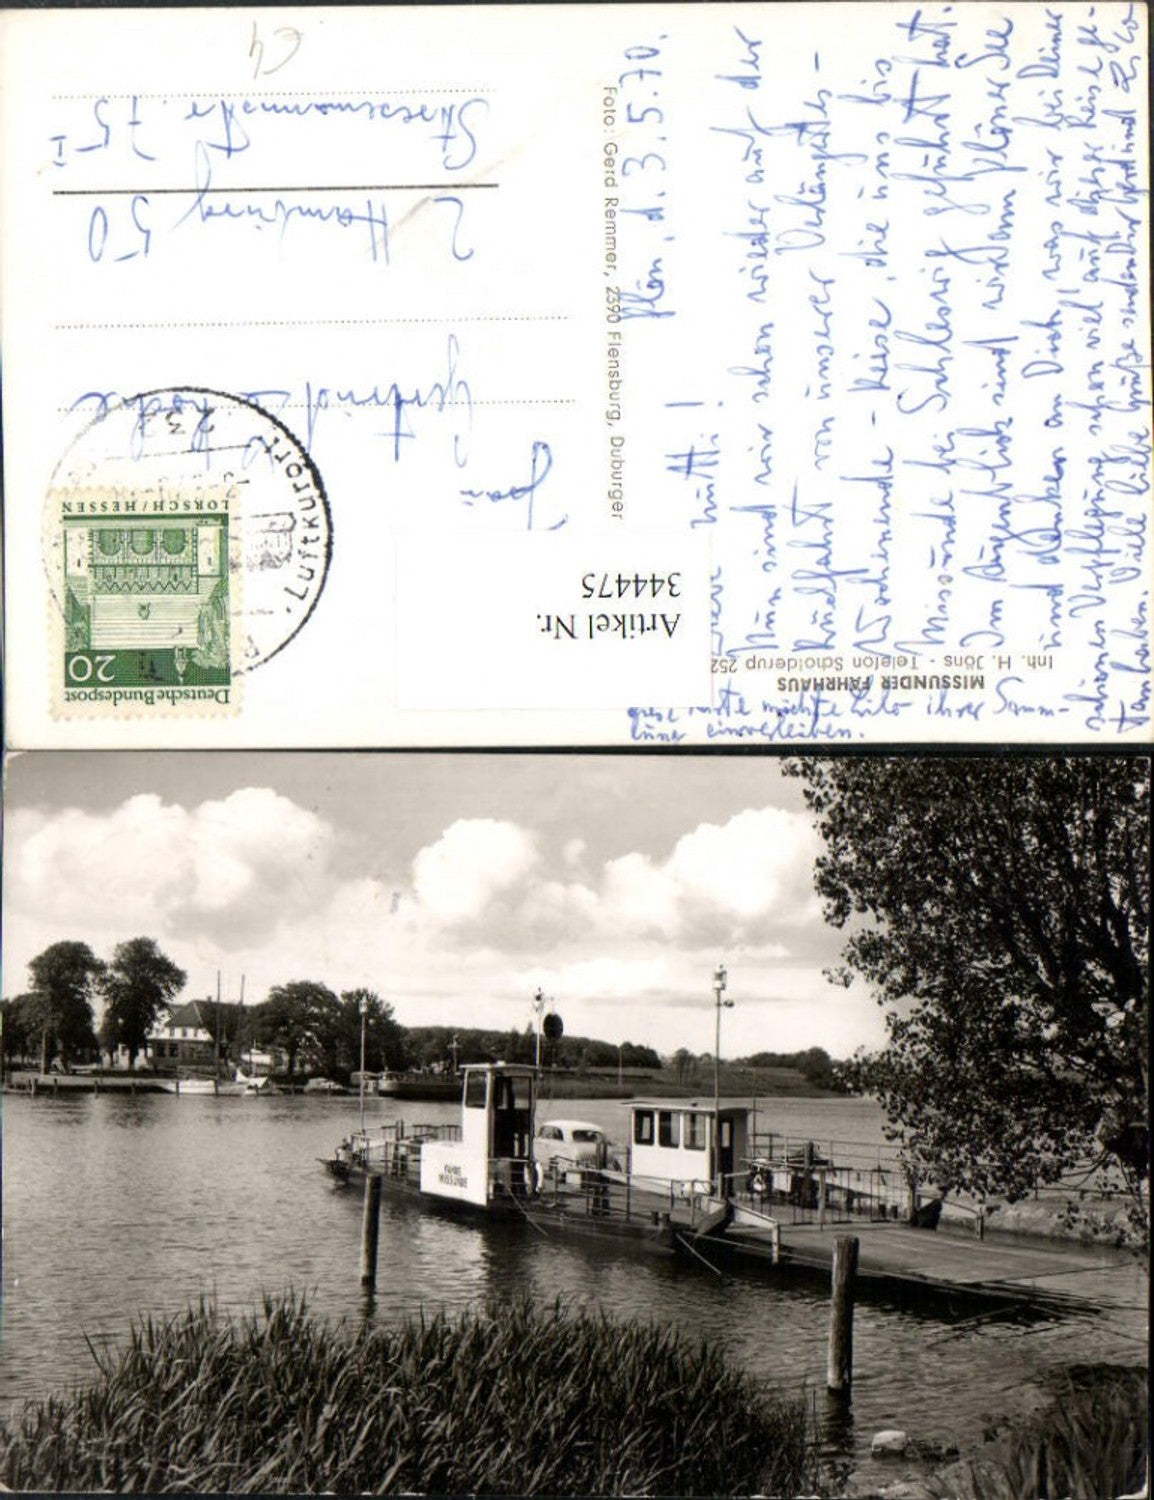 Plön, d. 3.5.70.
Mutti!
Nun sind wir schon wieder auf der
Rückfahrt von unserer
Wochenende-Reise, die uns bis
Missunde bei Schleswig geführt hat.
Im Augenblick sind wir am Plöner See
und denken an Dich, was wir bei Deiner
schönen Verpflegung schon viel auf dieser Reise ge-
tan haben. Viele liebe Grüße senden Dir
Karte möchte ihrer Samm-
lung einverleiben.
MISSUNDER FÄHRHAUS
Inh. H. Jöns - Telefon Scholderup 252
Foto: Gerd Remmer, 2390 Flensburg, Duburger
Artikel Nr.
344475
Frau
Gertrud
2 Hamburg 50
Stresemannstr. 75 I
Deutsche Bundespost
20
LORSCH/HESSEN
Luftkurort
FÄHRE
MISSUNDE